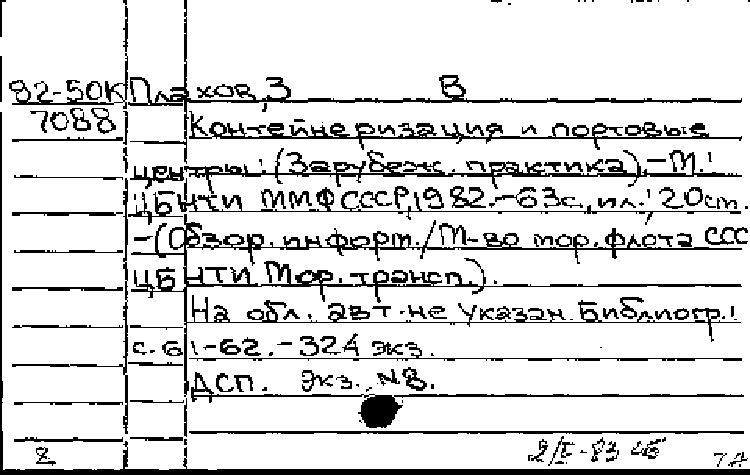 82-50К Плахов, З В
7088 Контейнеризация и портовые
центры: (Зарубеж. практика).-М.:
ЦБНТИ ММФ СССР, 1982.-63с., ил.; 20см.
-(Обзор. информ./М-во мор. флота ССС
ЦБНТИ Мор. трансп.).
На обл. авт. не указан. Библиогр.:
с. 61-62.-324 экз.
ДСП. Экз. N8.
2 2/I-83